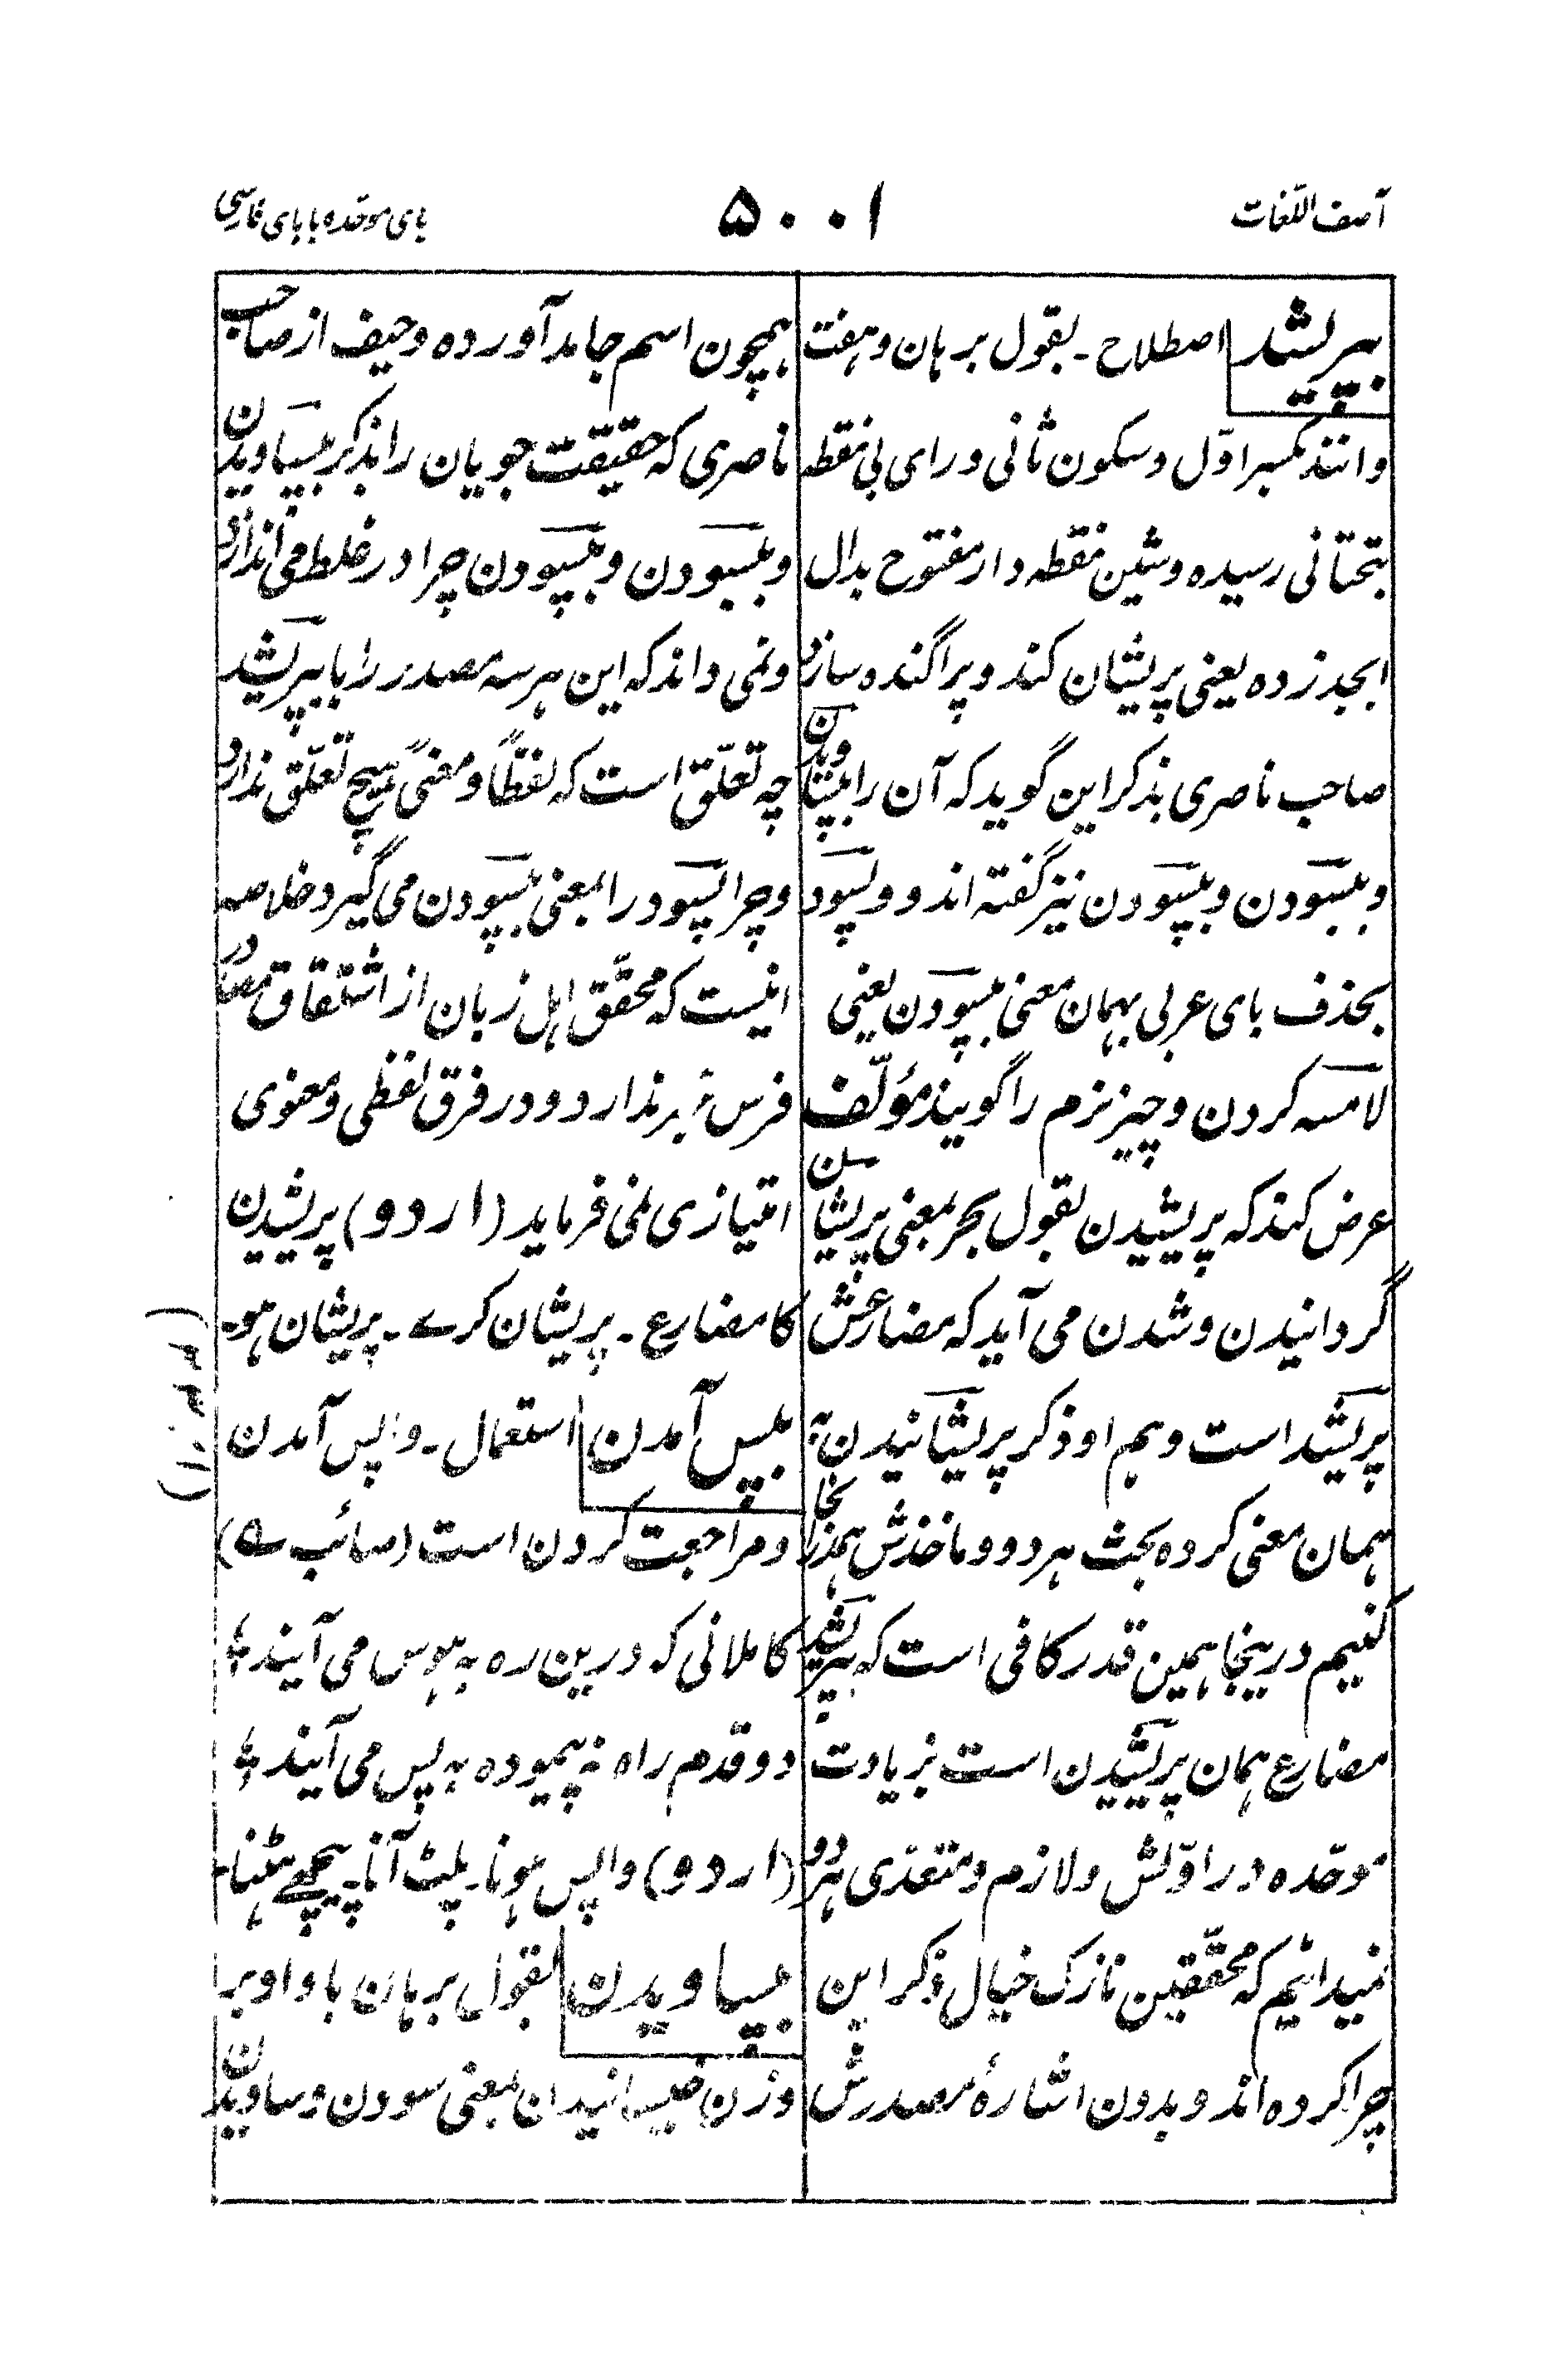 آصف اللغات
۵۰۰۱
بای موحّده با بای فارسی
بپریشد اصطلاح ۔ بقول برهان و هفت
و انند بکسر اوّل و سکون ثانی و رای بی نقطه
بتحتانی رسیده و شین نقطه دار مفتوح بدال
ابجد زده یعنی پریشان کند و پراگنده سازد
صاحب ناصری بذکر این گوید که آن را بپساویدن
و ببسودن و بپسودن نیز گفته اند و و پسود
بحذف بای عربی بهمان معنی بپسودن یعنی
لامسه کردن و چیز نرم را گویند مؤلّف
عرض کند که پریشیدن بقول بحر بمعنی پریشان
گردانیدن و شدن می آید که مضارعش
پریشد است و هم او ذکر پریشانیدن به
همان معنی کرده بحث هر دو و ماخذش همانجا
کنیم درینجا همین قدر کافی است که بپریشد
مضارع همان پریشیدن است بزیادت
موحّده در اوّلش و لازم و متعدّی هر دو
نمیدانیم که محقّقین نازک خیال ذکر این
چرا کرده اند و بدون اشارهٔ مصدرش
همچون اسم جامد آورده و حیف از صاحب
ناصری که حقیقت جویان را بذکر بپساویدن
و ببسودن و بپسودن چرا در غلط می اندازد
و نمی داند که این هر سه مصدر را با بپریشد
چه تعلّق است که لفظاً و معنیً هیچ تعلّق ندارد
و چرا پسود را بمعنی بپسودن می گیرد خلاصه
اینست که محقّق اهل زبان از اشتقاق مصادر
فرس خبر ندارد و در فرق لفظی و معنوی
امتیازی نمی فرماید (اردو) پریشیدن
کا مضارع ۔ پریشان کرے ۔ پریشان هو۔
بپس آمدن استعمال ۔ واپس آمدن
و مراجعت کردن است (صائب ے)
کاملانی که درین ره به هوس می آیند ؛
دو قدم راه نه پیموده به پس می آیند ؛
(اردو) واپس هونا ۔ پلٹ آنا ۔ پیچھے هٹنا ۔
بپساویدن بقول برهان با واو بر
وزن خیسانیدن بمعنی سودن و ساویدن